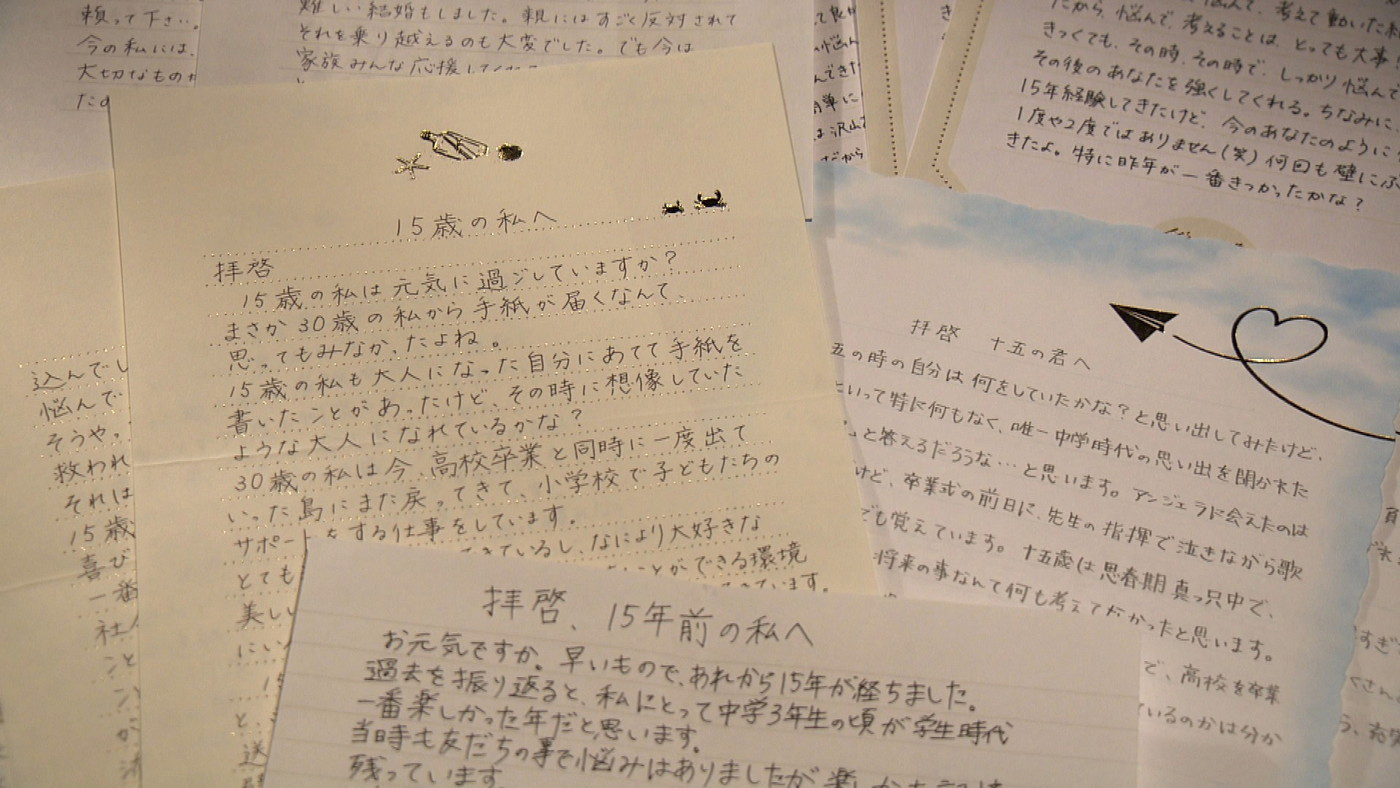 頼って下さい。
今の私には、
大切なものが
難しい結婚もしました。親にはすごく反対されて
それを乗り越えるのも大変でした。でも今は
家族みんな応援し
15歳の私へ
拝啓
15歳の私は元気に過ごしていますか?
まさか30歳の私から手紙が届くなんて
思ってもみなかったよね。
15歳の私も大人になった自分にあてて手紙を
書いたことがあったけど、その時に想像していた
ような大人になれているかな?
30歳の私は今、高校卒業と同時に一度出て
いった島にまた戻ってきて、小学校で子どもたちの
サポートをする仕事をしています。
きているし、なにより大好きな
ことができる環境
とても
美しい
きています。
拝啓、15年前の私へ
お元気ですか。早いもので、あれから15年が経ちました。
過去を振り返ると、私にとって中学3年生の頃が学生時代
一番楽しかった年だと思います。
当時も友だちの事で悩みはありましたが
残っています。
込んでし
悩んで
そうやっ
救われ
それは
15歳
喜び
一番
考えて動いた
だから、悩んで、考えることは、とっても大事!
きっくても、その時、その時で、しっかり悩んで
その後のあなたを強くしてくれる。ちなみに
15年経験してきたけど、今のあなたのように
1度や2度ではありません(笑)何回も壁にぶ
きたよ。特に昨年が一番きつかったかな?
拝啓 十五の君へ
五の時の自分は何をしていたかな?と思い出してみたけど、
といって特に何もなく、唯一中学時代の思い出を聞かれた
と答えるだろうな…と思います。アンジェラに会えたのは
けど、卒業式の前日に、先生の指揮で泣きながら歌
でも覚えています。十五歳は思春期真っ只中で、
将来の事なんて何も考えてなかったと思います。
で、高校を卒業
ているのかは分か